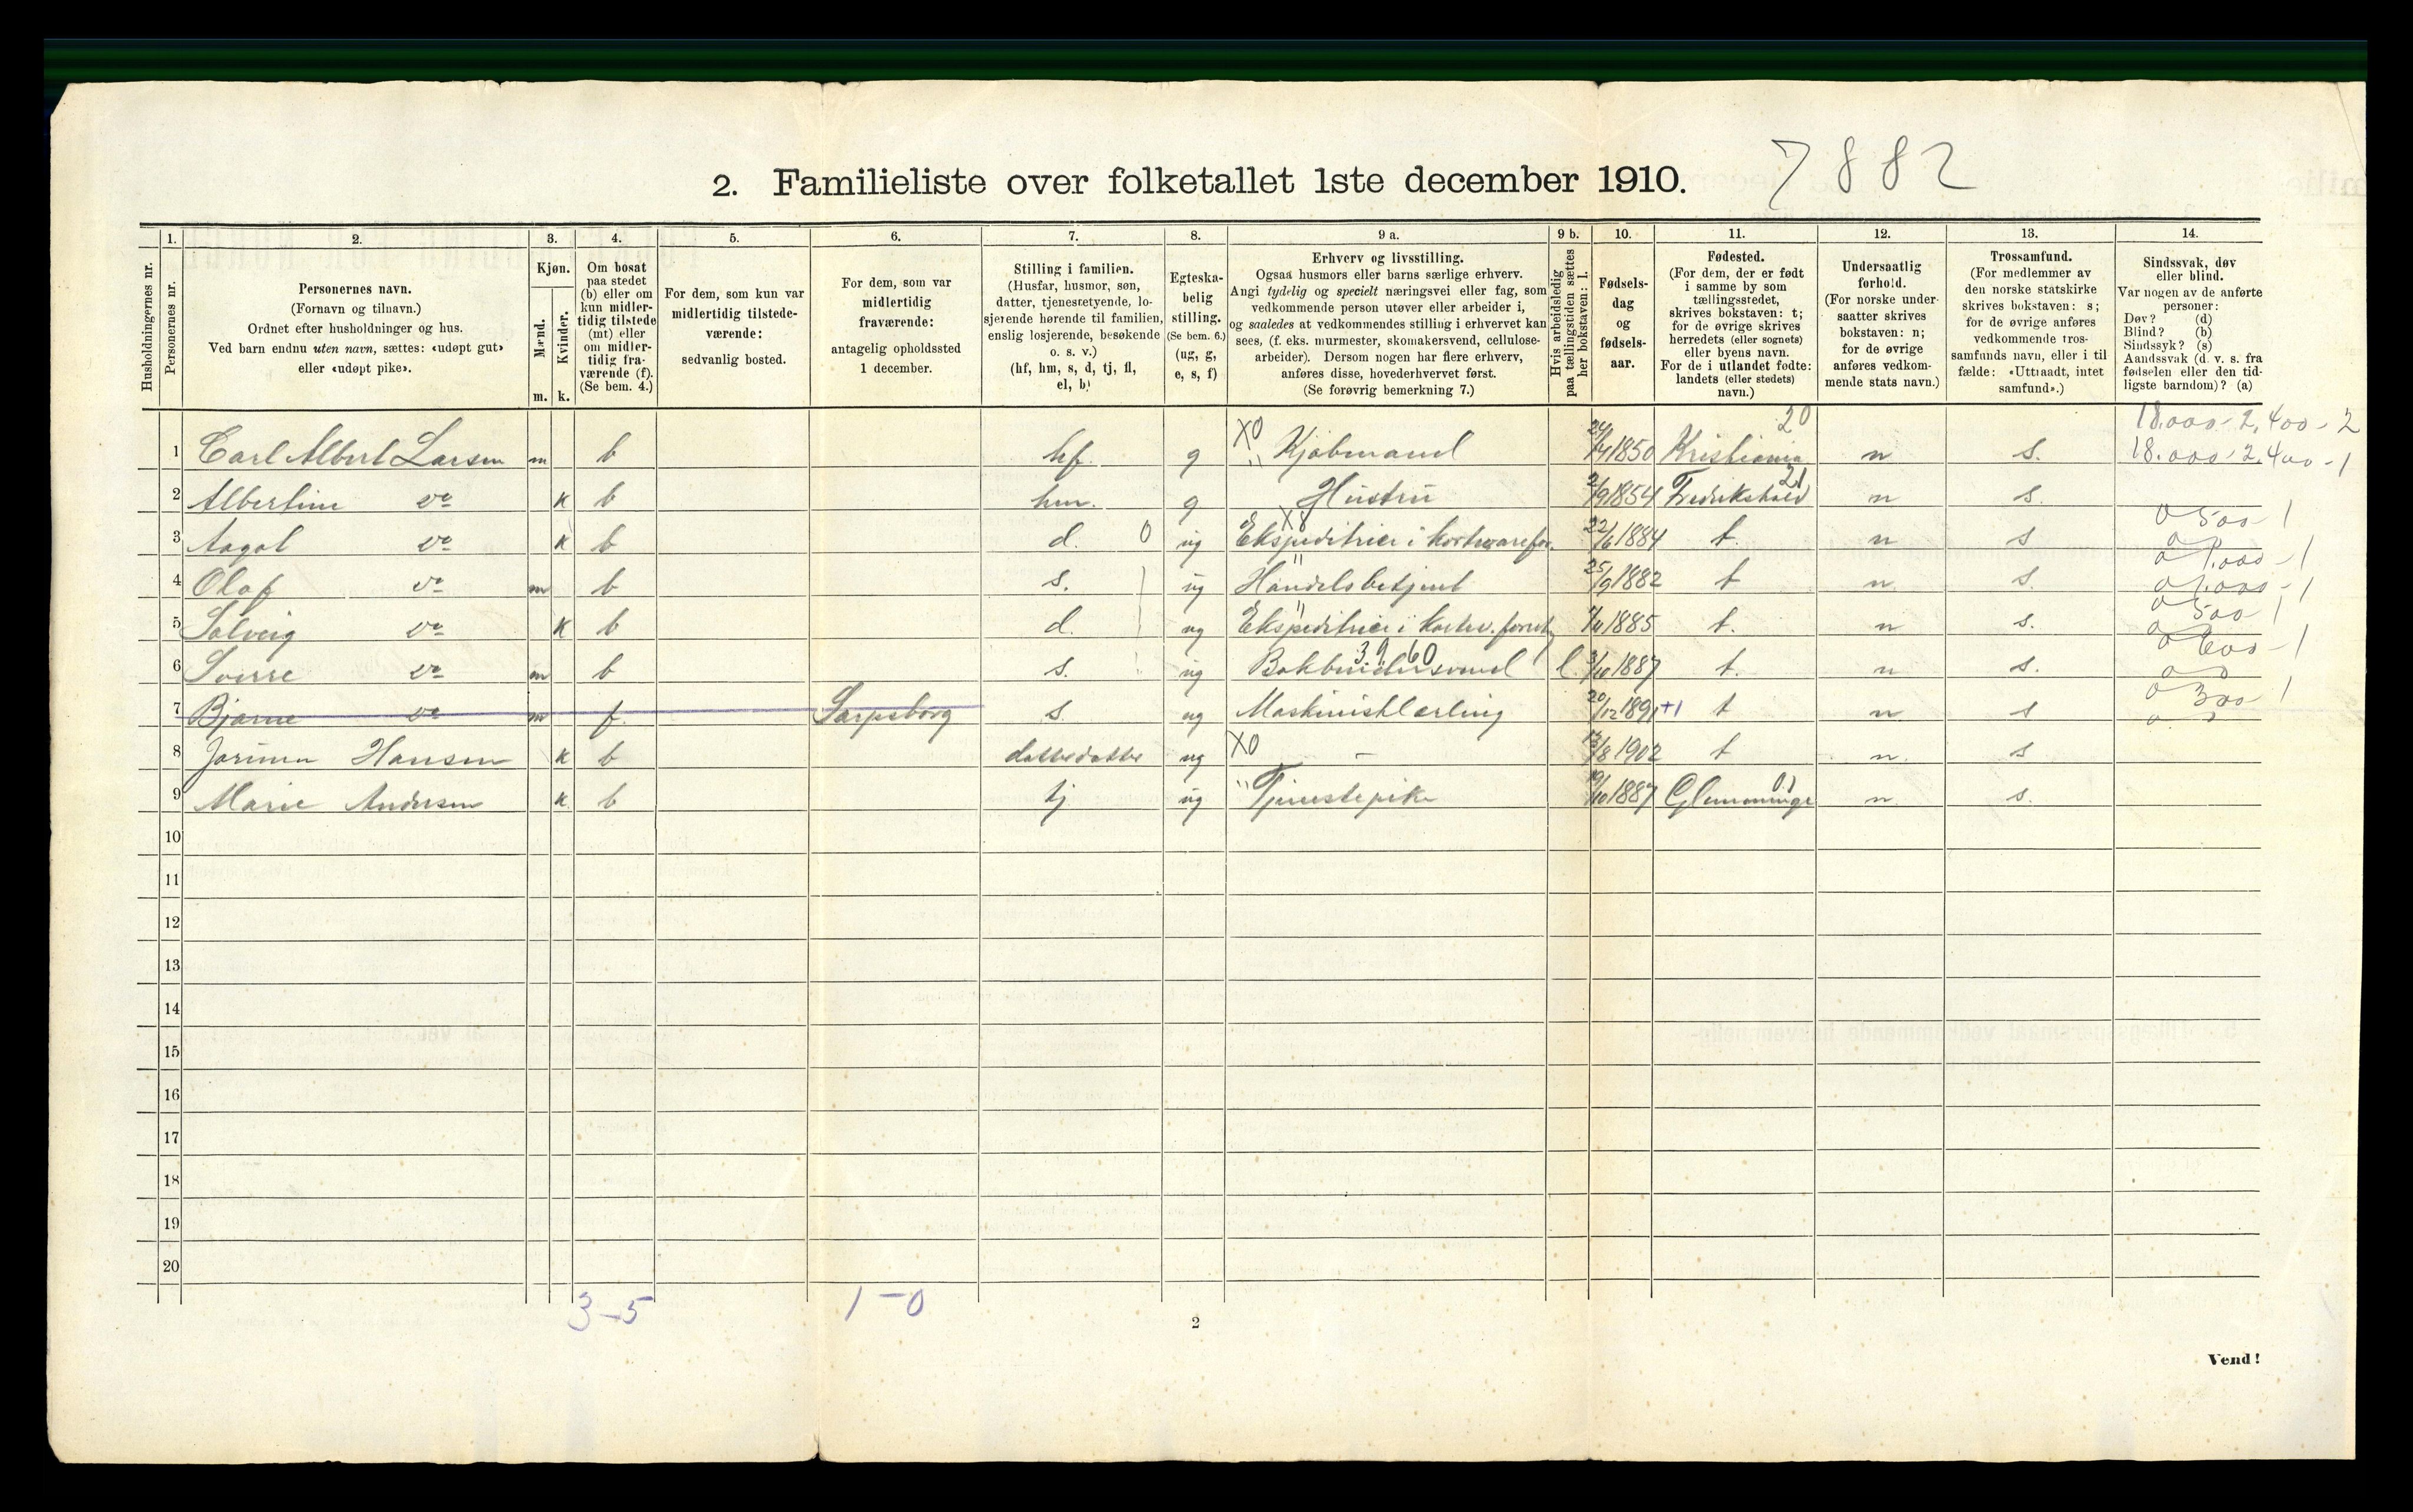 2. Familieliste over folketallet 1ste december 1910. 7882
Husholdningernes nr.
1. Personernes nr.
2. Personernes navn. (Fornavn og tilnavn.) Ordnet efter husholdninger og hus. Ved barn endnu uten navn, sættes: «udøpt gut» eller «udøpt pike».
3. Kjøn. Mænd. m. Kvinder. k.
4. Om bosat paa stedet (b) eller om kun midlertidig tilstede (mt) eller om midlertidig fraværende (f). (Se bem. 4.)
5. For dem, som kun var midlertidig tilstedeværende: sedvanlig bosted.
6. For dem, som var midlertidig fraværende: antagelig opholdssted 1 december.
7. Stilling i familien. (Husfar, husmor, søn, datter, tjenestetyende, losjerende hørende til familien, enslig losjerende, besøkende o. s. v.) (hf, hm, s, d, tj, fl, el, b)
8. Egteskabelig stilling. (Se bem. 6.) (ug, g, e, s, f)
9 a. Erhverv og livsstilling. Ogsaa husmors eller barns særlige erhverv. Angi tydelig og specielt næringsvei eller fag, som vedkommende person utøver eller arbeider i, og saaledes at vedkommendes stilling i erhvervet kan sees, (f. eks. murmester, skomakersvend, cellulosearbeider). Dersom nogen har flere erhverv, anføres disse, hovederhvervet først. (Se forøvrig bemerkning 7.)
9 b. Hvis arbeidsledig paa tællingstiden sættes her bokstaven: l.
10. Fødselsdag og fødselsaar.
11. Fødested. (For dem, der er født i samme by som tællingsstedet, skrives bokstaven: t; for de øvrige skrives herredets (eller sognets) eller byens navn. For de i utlandet fødte: landets (eller stedets) navn.)
12. Undersaatlig forhold. (For norske undersaatter skrives bokstaven: n; for de øvrige anføres vedkommende stats navn.)
13. Trossamfund. (For medlemmer av den norske statskirke skrives bokstaven: s; for de øvrige anføres vedkommende trossamfunds navn, eller i tilfælde: «Uttraadt, intet samfund».)
14. Sindssvak, døv eller blind. Var nogen av de anførte personer: Døv? (d) Blind? (b) Sindssyk? (s) Aandssvak (d. v. s. fra fødselen eller den tidligste barndom)? (a)
20 18.000-2.400-2
1 Carl Albert Larsen m b hf. g X0 Kjøbmand 24/4 1850 Kristiania n s. 18.000-2.400-1
2 Albertine do k b hm. g Hustru 2/9 1854 Fredrikshald 21 n s.
3 Aagot do k b d. 0 ug X8 Ekspeditrice i kortevarefor. 22/6 1884 t. n s 0 500 1
4 Olaf do m b s. ug " Handelsbetjent 25/9 1882 t n s. 0 1.000-1
5 Solveig do k b d. ug " Ekspeditrice i kortev. forretn. 1885 t. n s. 0 500 1
6 Sverre do m b s. ug 39 60 Bokbindersvend l. 3/10 1887 t. n s. 0 600-1
7 Bjarne do m f. Sarpsborg s. ug Maskinistlærling 20/12 1891 +1 t n s 0 300 1
8 Jorunn Hansen k b datterdatter ug X0 – 13/8 1902 t n. s
9 Marie Andersen k b tj ug " Tjenestepike 19/10 1887 Glemminge 01 n s.
10
11
12
13
14
15
16
17
18
19
20
3-5 1-0
2
Vend!